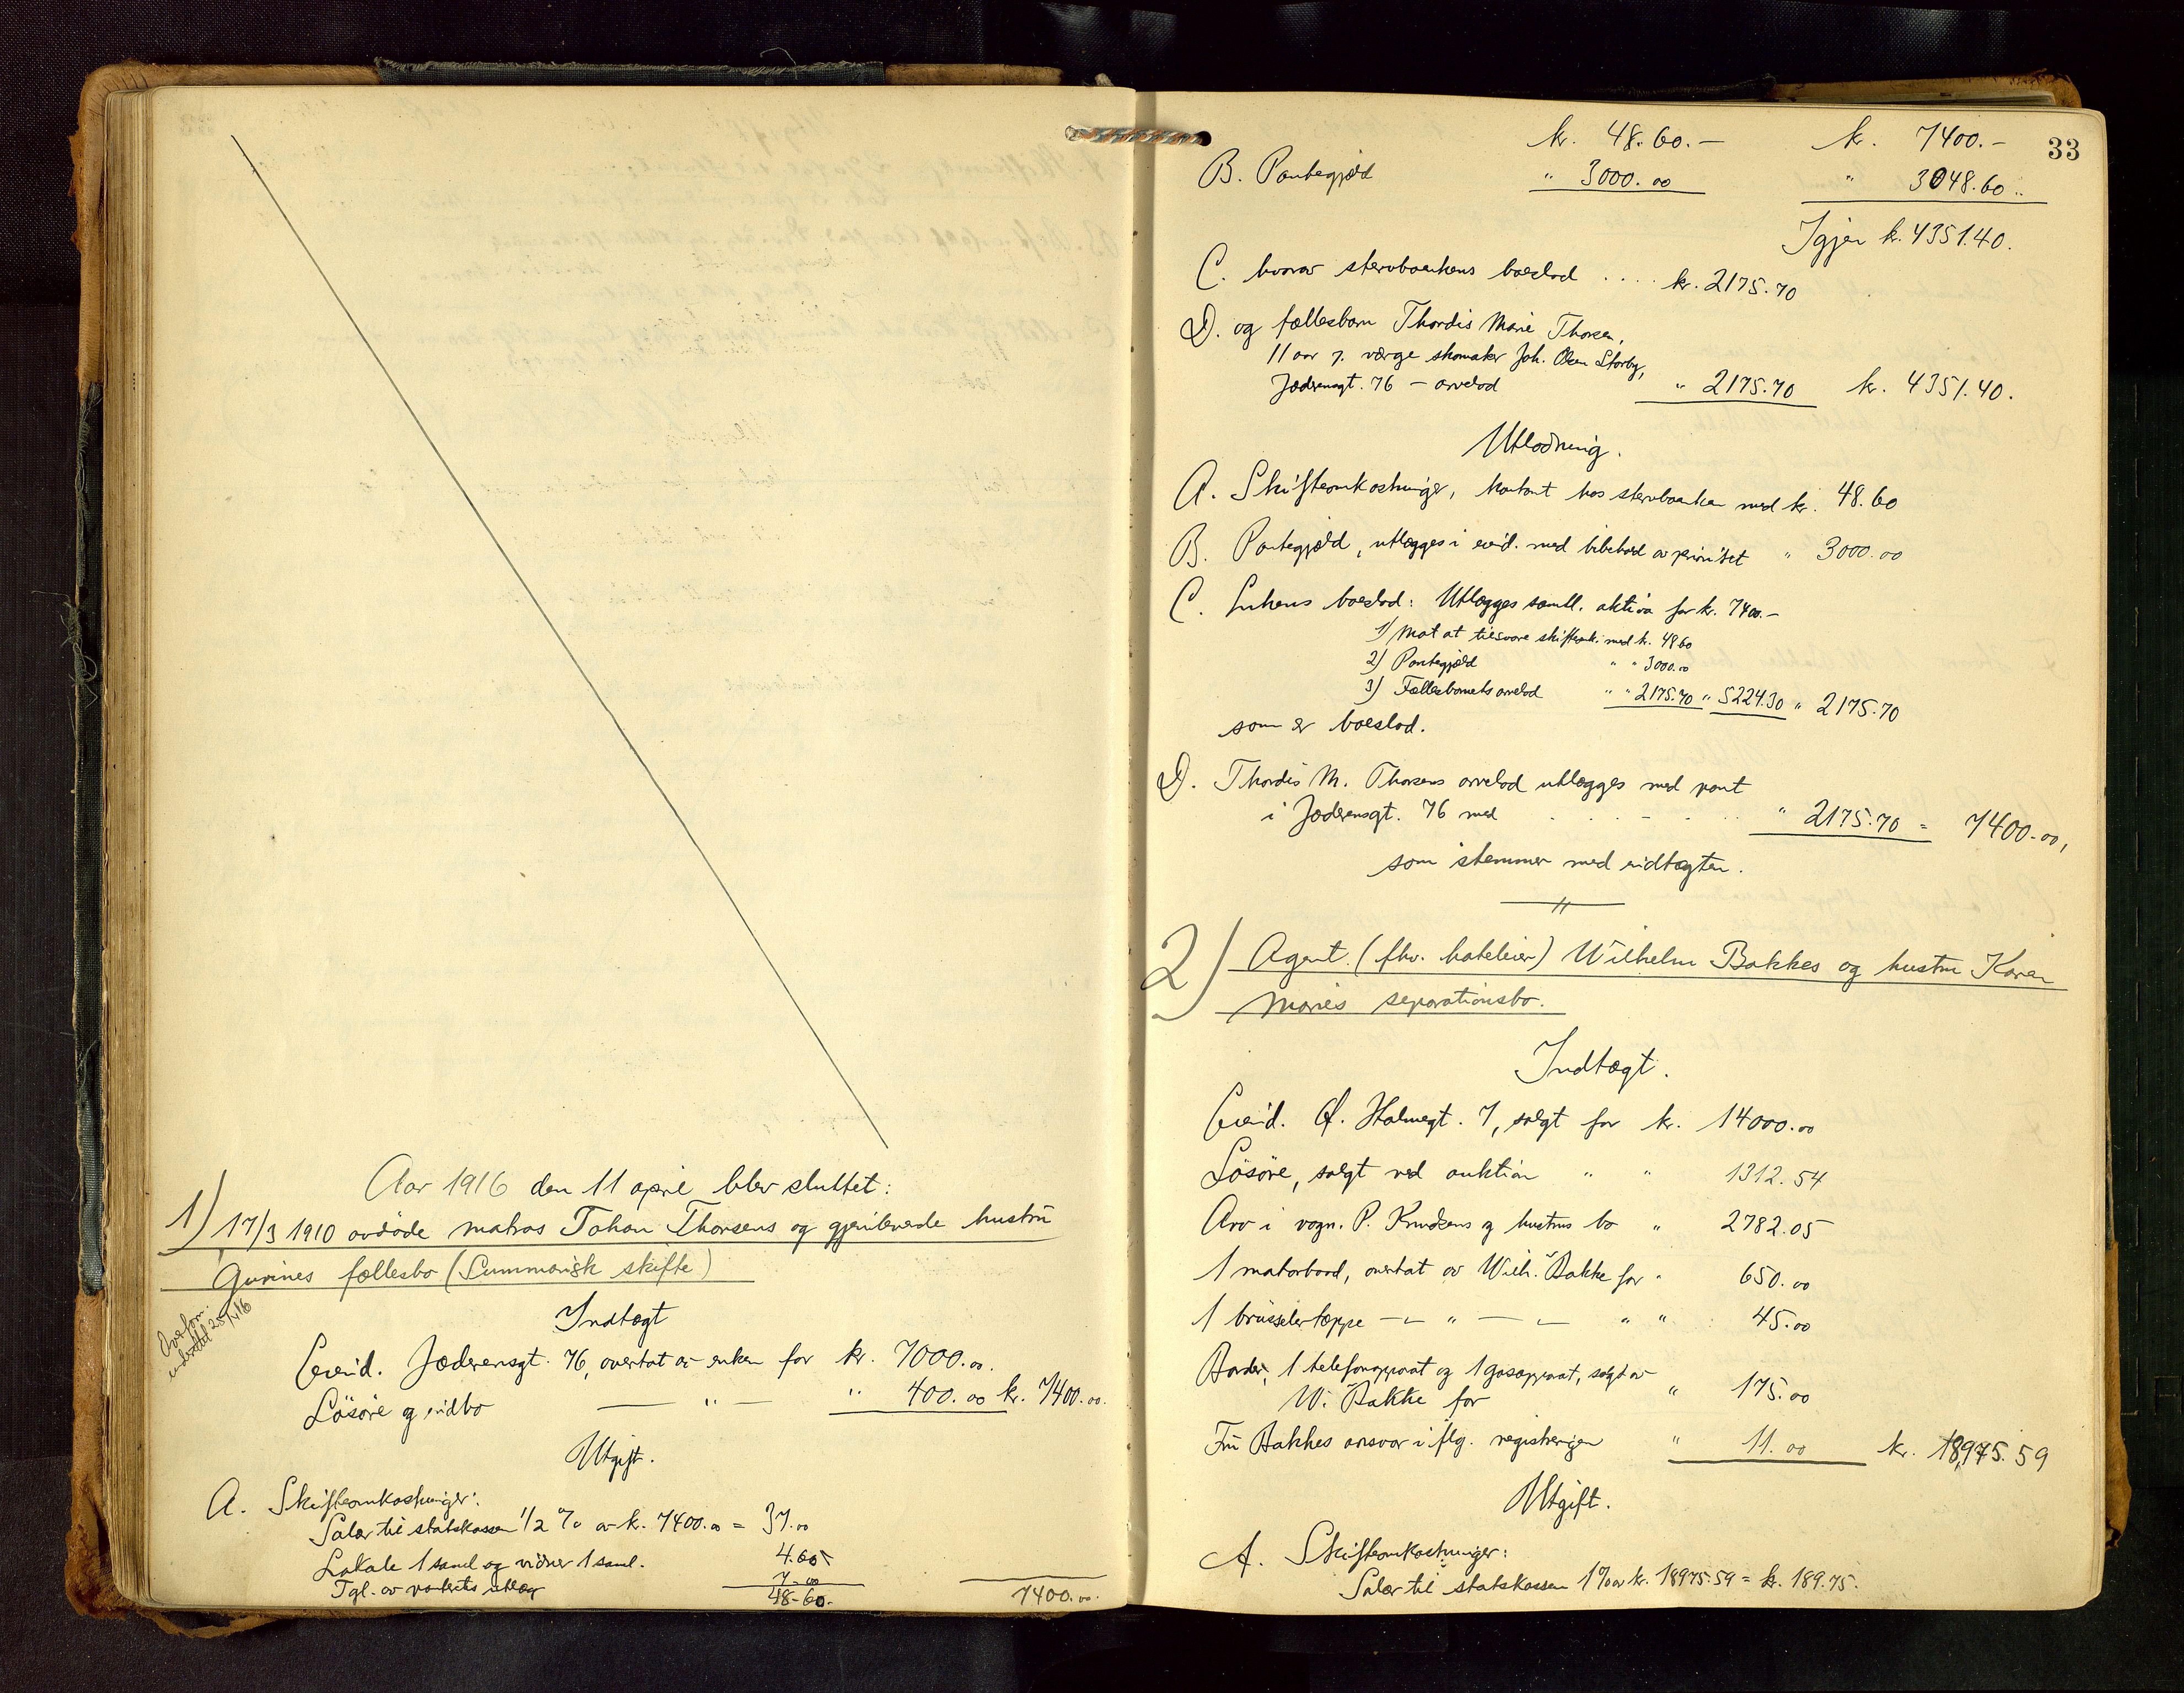 Aar 1916 den 11 april blev sluttet:
1) 17/3 1910 avdöde matros Johan Thorsens og gjenlevende hustru
Gurines fællesbo (Summarisk skifte)
25/4 16
Indtægt
Eiend. Jæderensgt. 76, overtat av enken for kr. 7000.00
Lösöre og indbo — " — " 400.00 kr. 7400.00
Utgift.
A. Skifteomkostninger:
Salær til statskassen 1/2 % av kr. 7400.00 = 37.00
Lokale 1 saml og vidner 1 saml. 4.60
Tgl. av panterets utlæg 7.00
48.60. 7400.00
33
kr. 48.60.— kr. 7400.—
B. Pantegjæld " 3000.00 " 3048.60..
Igjen kr. 4351.40.
C. hvorav stervboenkens boeslod .... kr. 2175.70
D. og fællesbarn Thordis Marie Thorsen,
11 aar g. værge skomaker Joh. Olsen Storby,
Jæderensgt. 76 — arvelod " 2175.70 kr. 4351.40.
Utlodning.
A. Skifteomkostninger, kontant hos stervboenken med kr. 48.60
B. Pantegjæld, utlægges i eiend. med bibehold av prioritet " 3000.00
C. Enkens boeslod: Utlægges samtl. aktiva for kr. 7400.—
1) Mot at tilsvare skifteomk. med kr. 48.60
2) Pantegjæld " " 3000.00
3) Fællesbarnets arvelod " " 2175.70 " 5224.30 " 2175.70
som er boeslod.
D. Thordis M. Thorsens arvelod utlægges med pant
i Jæderensgt. 76 med . . . . " 2175.70 = 7400.00,
som stemmer med indtægten.
2) Agent. (fhv. hoteleier) Wilhelm Bakkes og hustru Karen
Maries separationsbo.
Indtægt.
Eiend. Ø. Holmegt. 7, solgt for kr. 14000.00
Lösöre, solgt ved auktion " " 1312.54
Arv i vogn. P. Knudsens og hustrus bo " 2782.05
1 motorbaad, overtat av Wilh. Bakke for " 650.00
1 brüsselertæppe — " — " " 45.00
1 telefonapparat og 1 gasapparat, solgt av
W. Bakke for " 175.00
Fru Bakkes ansvar i flg. registreringen " 11.00 kr. 18,975.59
Utgift.
A. Skifteomkostninger:
Salær til statskassen 1 % av kr. 18975.59 = kr. 189.75.